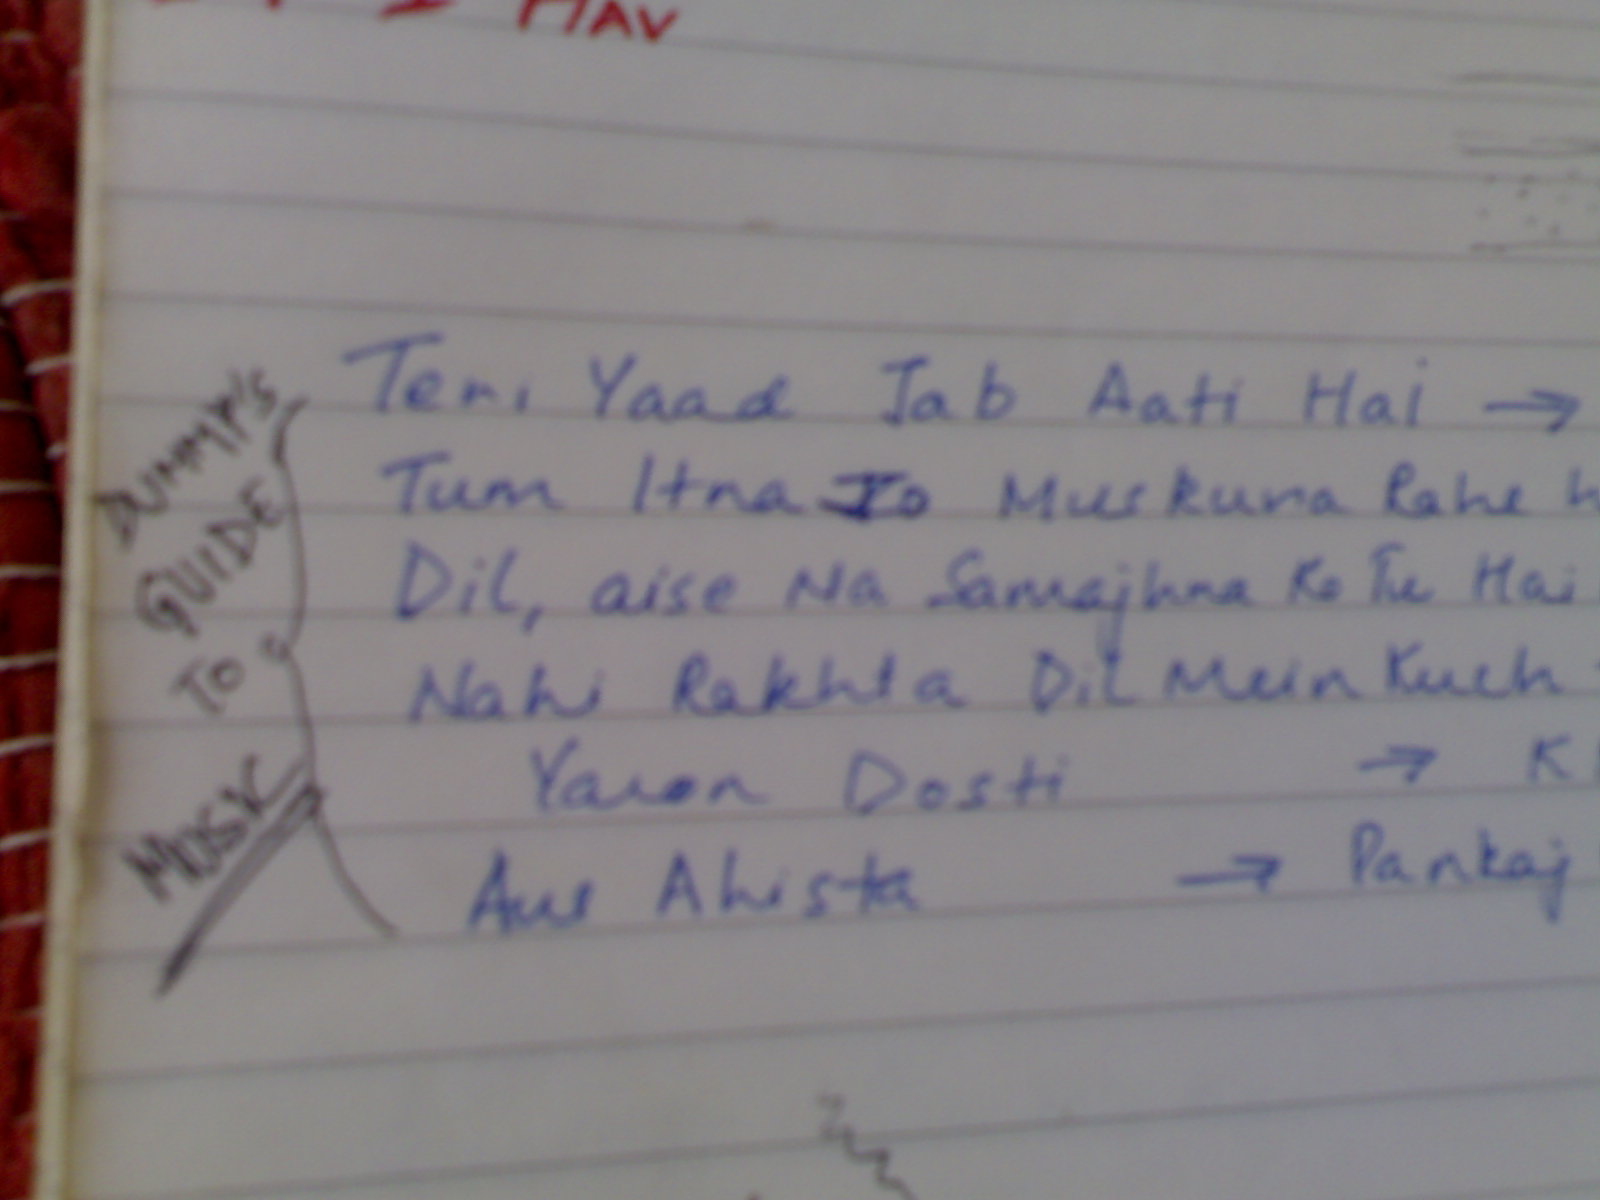 I HAV
DUMMY'S
GUIDE
TO
MUSIC
Teri Yaad Jab Aati Hai →
Tum Itna Jo Muskura Rahe h
Dil, aise Na Samajhna Ke Tu Hai
Nahi Rakhta Dil Mein Kuch
Yaron Dosti → K
Aur Ahista → Pankaj